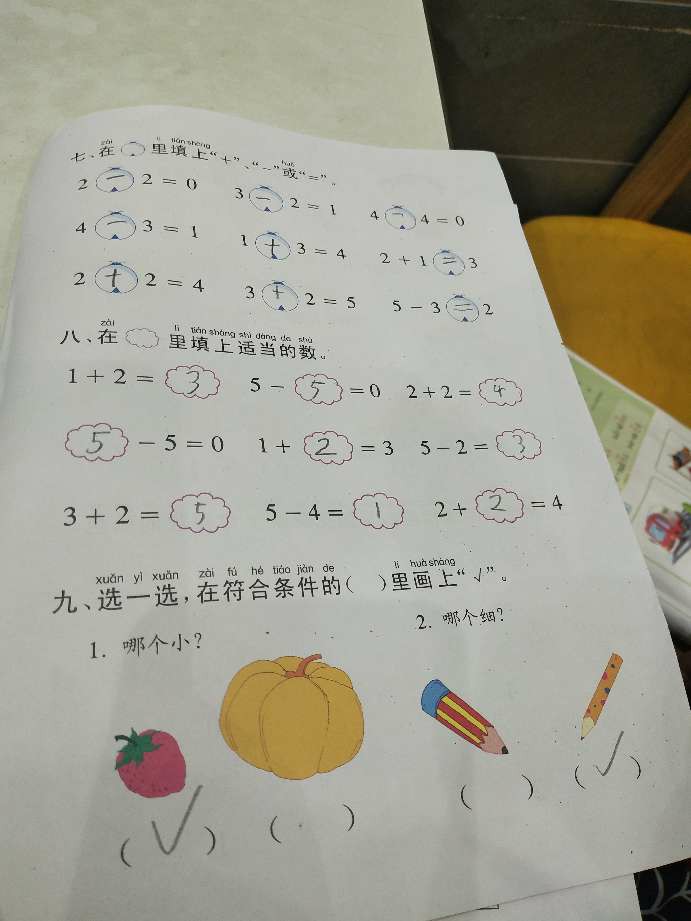 zài lǐ tián shàng huò
七、在 里填上“+”、“-”或“=”。
2 - 2 = 0 3 - 2 = 1 4 - 4 = 0
4 - 3 = 1 1 + 3 = 4 2 + 1 = 3
2 + 2 = 4 3 + 2 = 5 5 - 3 = 2
zài lǐ tián shàng shì dàng de shù
八、在 里填上适当的数。
1 + 2 = 3 5 - 5 = 0 2 + 2 = 4
5 - 5 = 0 1 + 2 = 3 5 - 2 = 3
3 + 2 = 5 5 - 4 = 1 2 + 2 = 4
xuǎn yì xuǎn zài fú hé tiáo jiàn de lǐ huà shàng
九、选一选,在符合条件的( )里画上“√”。
1. 哪个小? 2. 哪个细?
( √ ) ( ) ( ) ( √ )